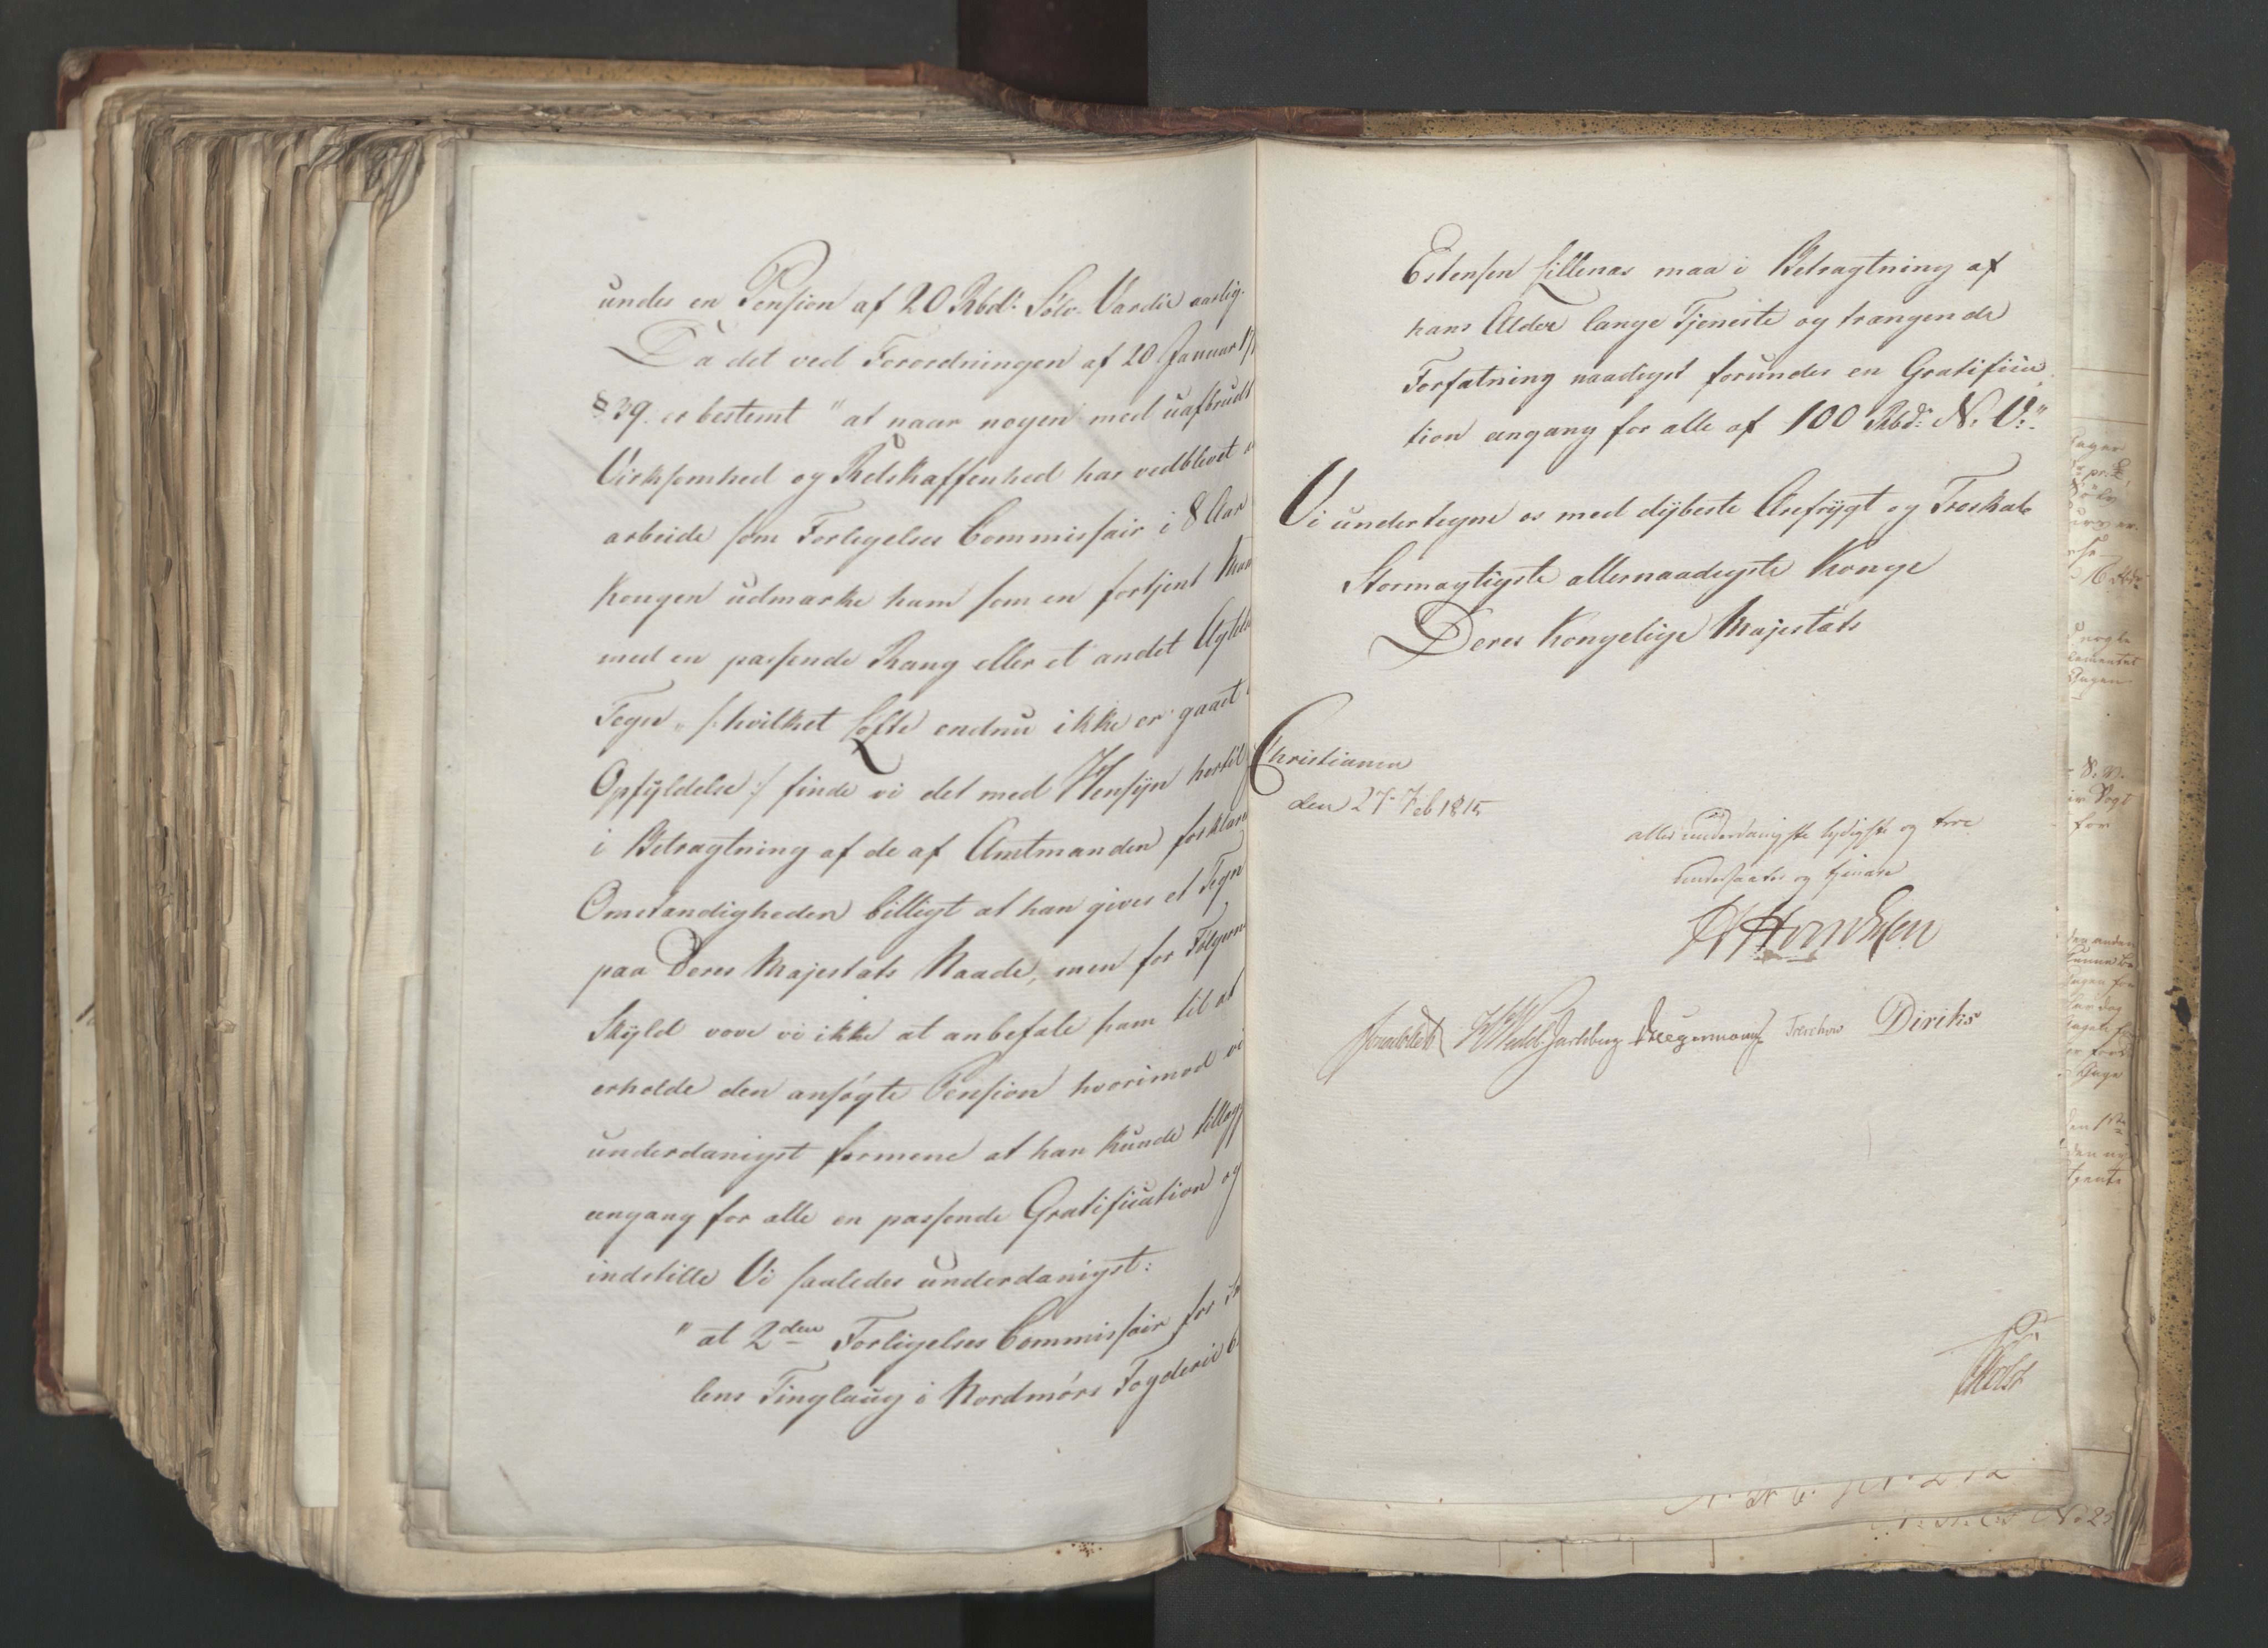 undes en Pension af 20 Rbdr. Sølv Værdie aarlig.
Da det ved Forordningen af 20 Januar
§ 39. er bestemt "at naar nogen med uafbrudt
Virksomhed og Retskaffenhed har vedblevet
arbeide som Forligelses Commissair i 8 Aar
Kongen udmærke ham som en fortjent Man
med en passende Rang eller et andet
Tegn" /: hvilket Løfte endnu ikke er gaaet
Opfyldelse :/ finde vi det med Hensyn hertil
i Betragtning af de af Amtmanden forklare
Omstændigheder billigt at han gives et Tegn
paa Deres Majestæts Naade, men for Følgens
Skyld vove vi ikke at anbefale ham til at
erholde den ansøgte Pension hvorimod vi
underdanigst formene at han kunde tillæg
eengang for alle en passende Gratification og
indstille Vi saaledes underdanigst:
"at 2den Forligelses Commissair for
lens Tinglaug i Nordmørs Fogderie
Estensen Lillenæs maa i Betragtning af
hans Alder lange Tjeneste og trængende
Forfatning naadigst forundes en Gratifica
tion eengang for alle af 100 Rbdr N. V."
Vi undertegne os med dybeste Ærefrygt og Troskab
Stormægtigste allernaadigste Konge
Deres Kongelige Majestæts
Christiania
den 27 Feb 1815
allerunderdanigste lydigste og troe
undersaatter og tjenere
Sommerhielm HWedel Jarlsberg Hegermann Treschow Diriks
Holst